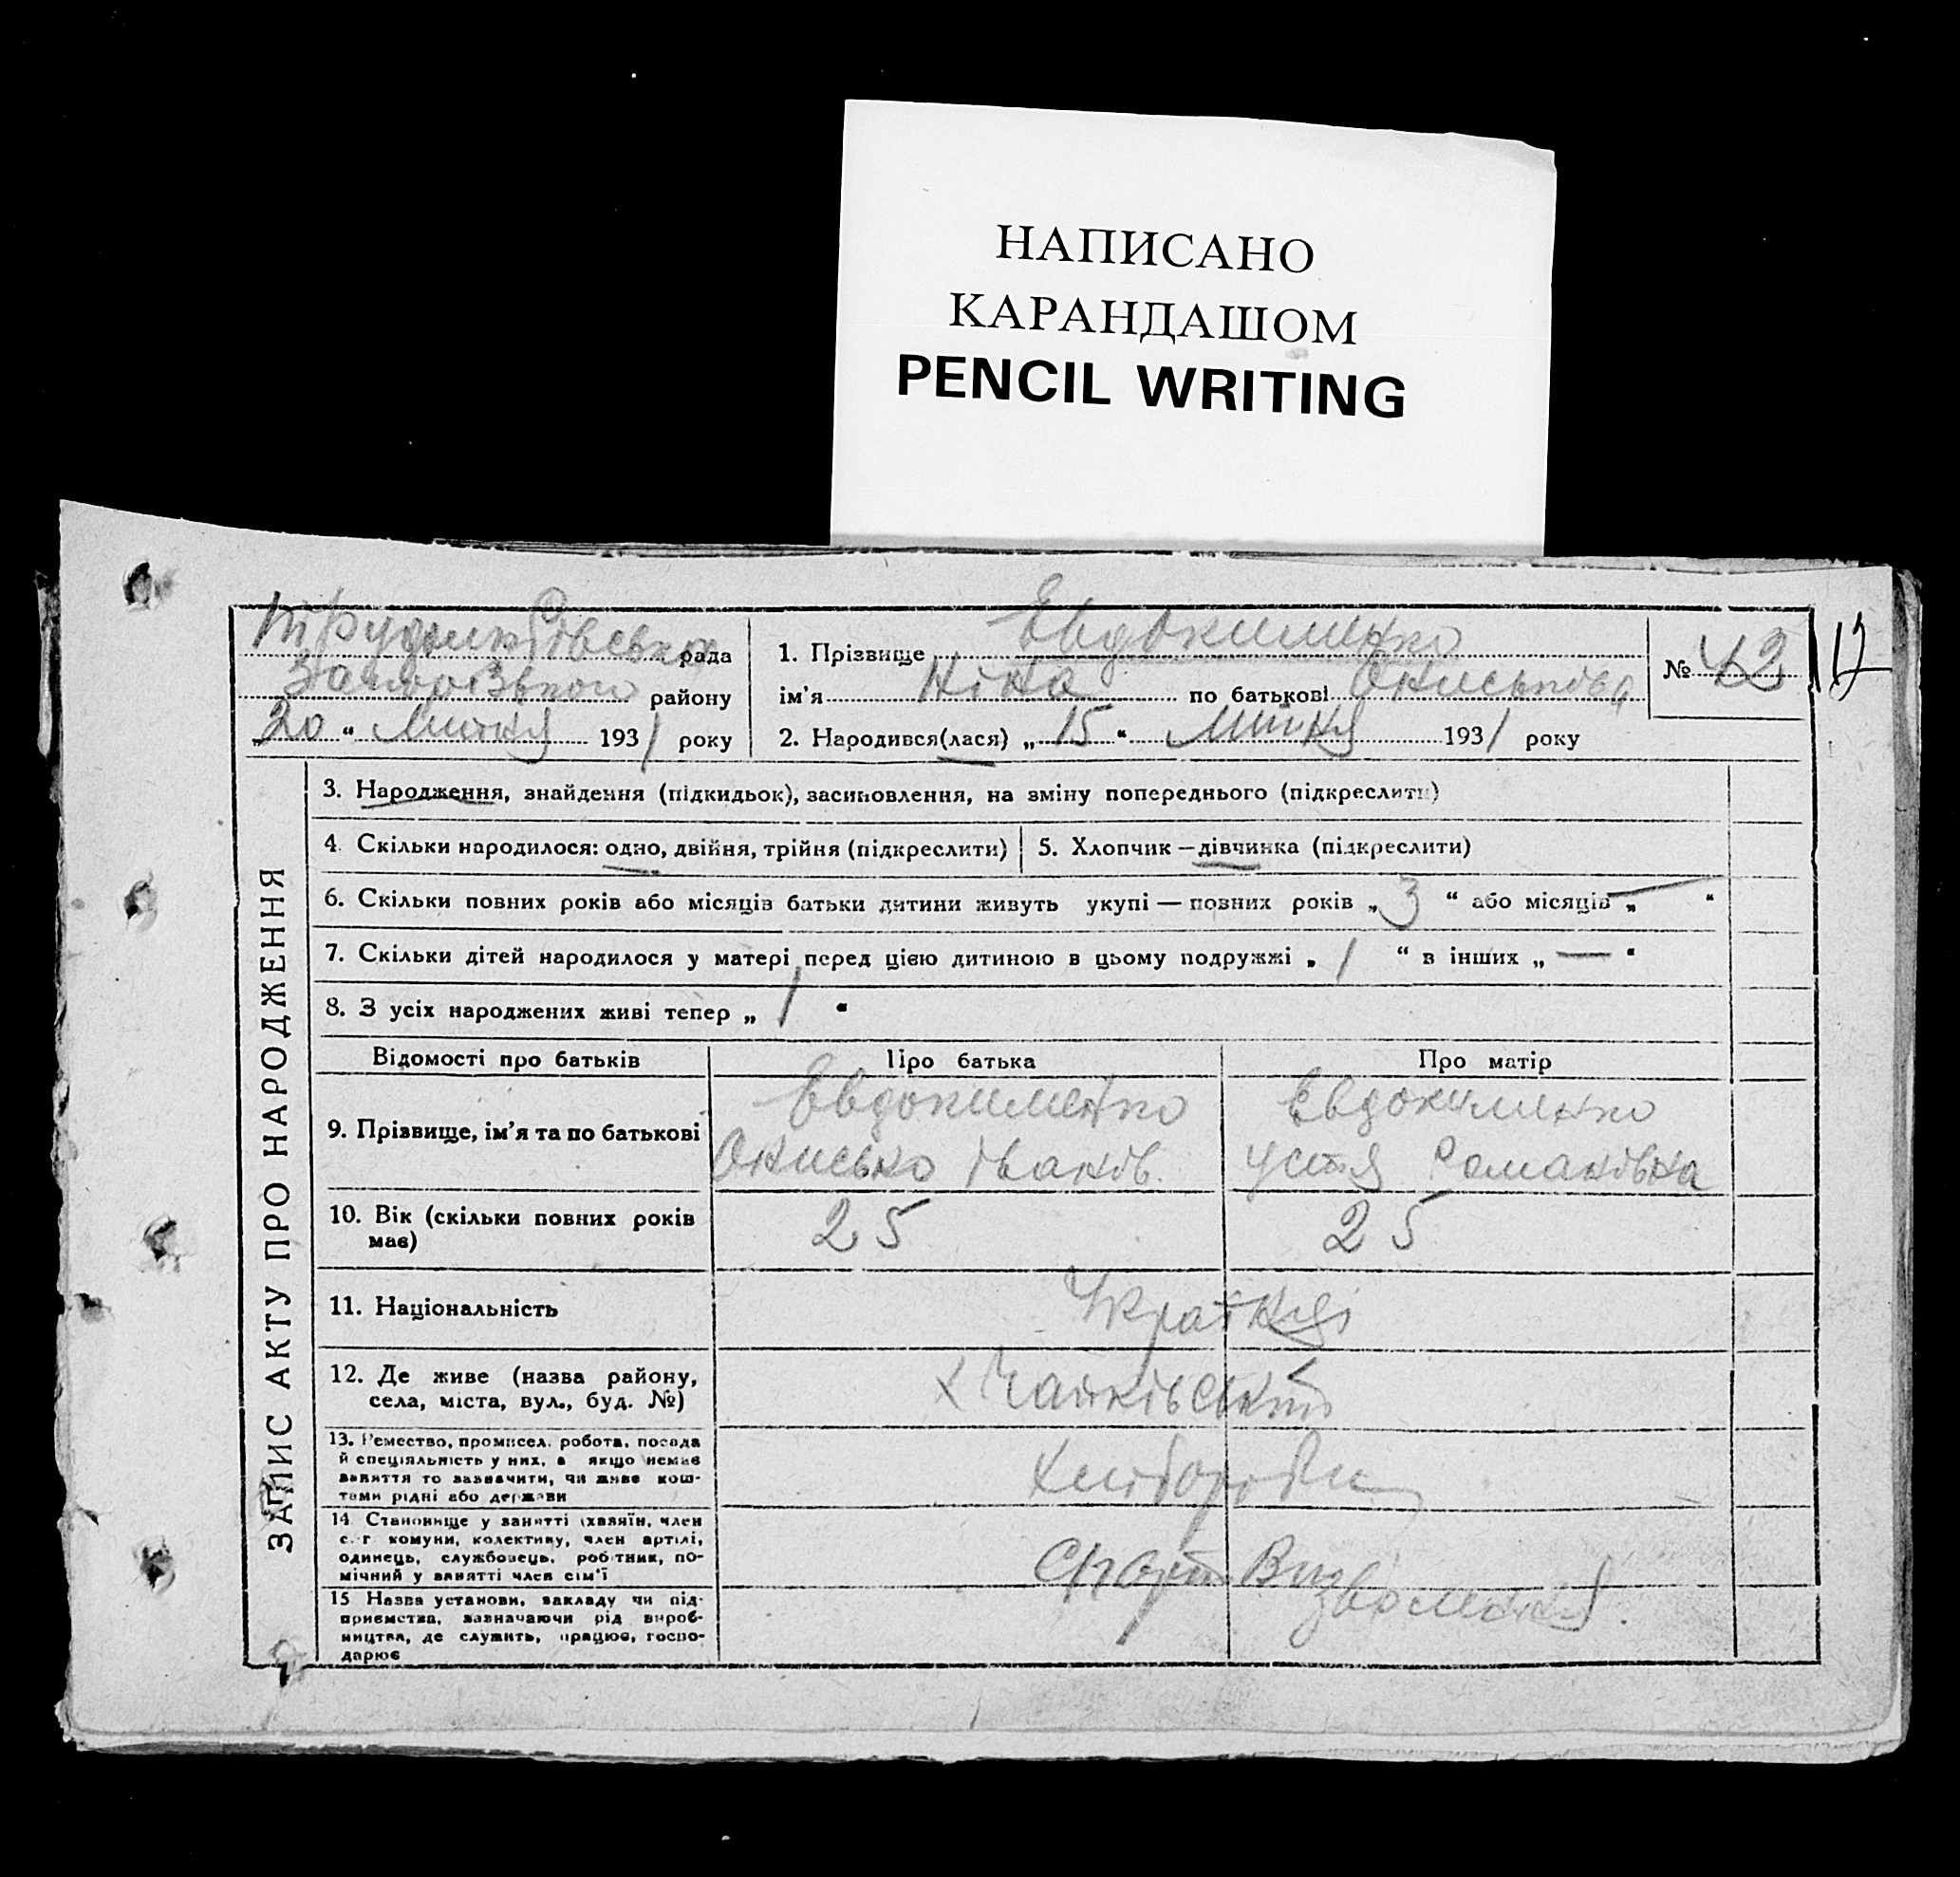 НАПИСАНО
КАРАНДАШОМ
PENCIL WRITING
рада
району
„20“ Лютня 1931 року
1. Прізвище Евдокименко
ім’я Ніна по батькові Ониськівна
№ 42
12
2. Народився(лася) „15“ Лютня 1931 року
ЗАПИС АКТУ ПРО НАРОДЖЕННЯ
3. Народження, знайдення (підкидьок), засиновлення, на зміну попереднього (підкреслити)
4. Скільки народилося: одно, двійня, трійня (підкреслити)
5. Хлопчик — дівчинка (підкреслити)
6. Скільки повних років або місяців батьки дитини живуть укупі — повних років „3“ або місяців „—“
7. Скільки дітей народилося у матері перед цією дитиною в цьому подружжі „1“ в інших „—“
8. З усіх народжених живі тепер „1“
Відомості про батьків Про батька Про матір
9. Прізвище, ім’я та по батькові
Евдокименко
Онисько Іванів.
Евдокименко
Устя Романівна
10. Вік (скільки повних років
має)
25 25
11. Національність
Українці
12. Де живе (назва району,
села, міста, вул., буд. №)
х Чайківський
13. Ремество, промисел, робота, посада
й спеціяльність у них, а якщо немає
заняття то зазначити, чи живе кош-
тами рідні або держави
Хлібороби
14. Становище у занятті (хазяїн, член
с.-г комуни, колективу, член артілі,
одинець, службовець, робітник, по-
мічний у занятті член сім’ї
15 Назва установи, закладу чи під-
приємства, зазначаючи рід вироб-
ництва, де служить, працює, госпо-
дарює
Визволення.